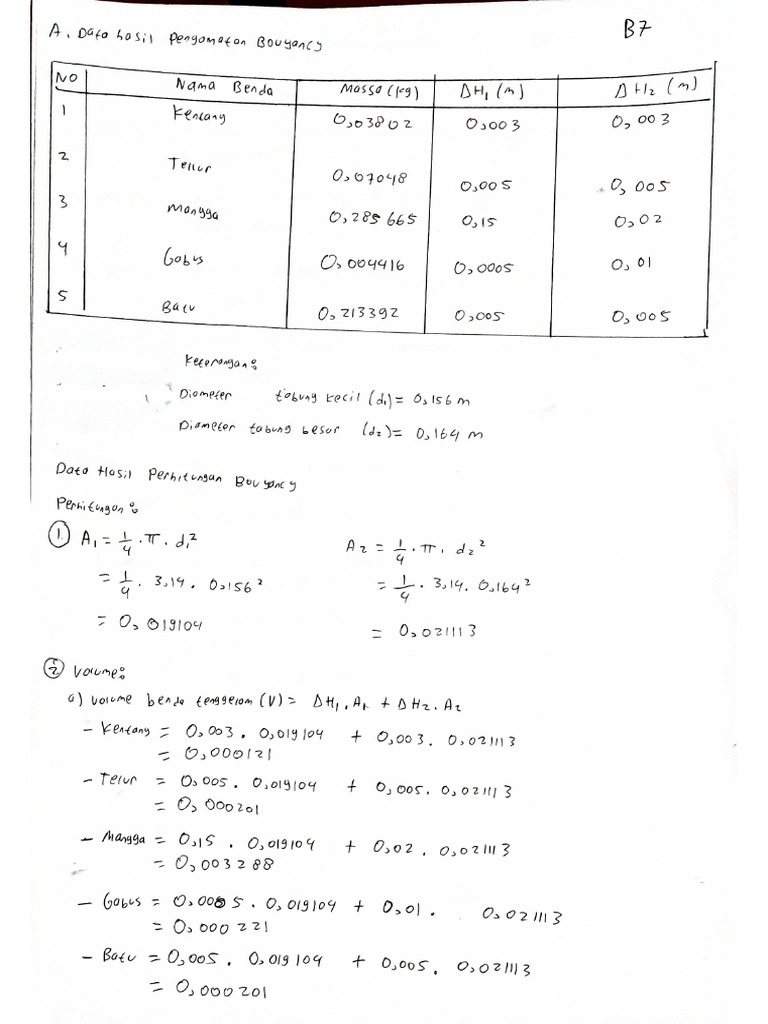 B7
A. Data hasil Pengamatan Bouyancy
NO Nama Benda Massa (kg) ΔH₁ (m) ΔH₂ (m)
1 Kentang 0,03802 0,003 0,003
2 Telur 0,07048 0,005 0,005
3 Mangga 0,285665 0,15 0,02
4 Gabus 0,004416 0,0005 0,01
5 Batu 0,213392 0,005 0,005
Keterangan:
Diameter tabung kecil (d₁) = 0,156 m
Diameter tabung besar (d₂) = 0,164 m
Data Hasil Perhitungan Bouyancy
Perhitungan:
① A₁ = 1/4 . π . d₁² A₂ = 1/4 . π . d₂²
= 1/4 . 3,14 . 0,156² = 1/4 . 3,14 . 0,164²
= 0,019104 = 0,021113
② Volume:
a) Volume benda tenggelam (V) = ΔH₁ . A₁ + ΔH₂ . A₂
- Kentang = 0,003 . 0,019104 + 0,003 . 0,021113
= 0,000121
- Telur = 0,005 . 0,019104 + 0,005 . 0,021113
= 0,000201
- Mangga = 0,15 . 0,019104 + 0,02 . 0,021113
= 0,003288
- Gabus = 0,0005 . 0,019104 + 0,01 . 0,021113
= 0,000221
- Batu = 0,005 . 0,019104 + 0,005 . 0,021113
= 0,000201